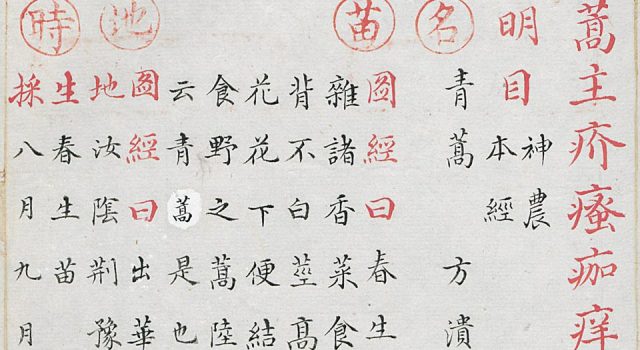 蒿主疥瘙痂痒
明目神農
本經
名青蒿方潰
苗圖經曰春生
雜諸香菜食
背不白莖高
花花下便結
食野之蒿陸
云青蒿是也
地圖經曰出華
地汝陰荊豫
時生春生苗
採八月九月